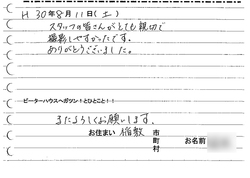 H 30年8月11日(土)
スタッフの皆さんがとても親切で
撮影しやすかったです。
ありがとうございました。
ピーターハウスへガツン!とひとこと!!
またよろしくお願いします。
お住まい 稲敷 市
町
村
お名前